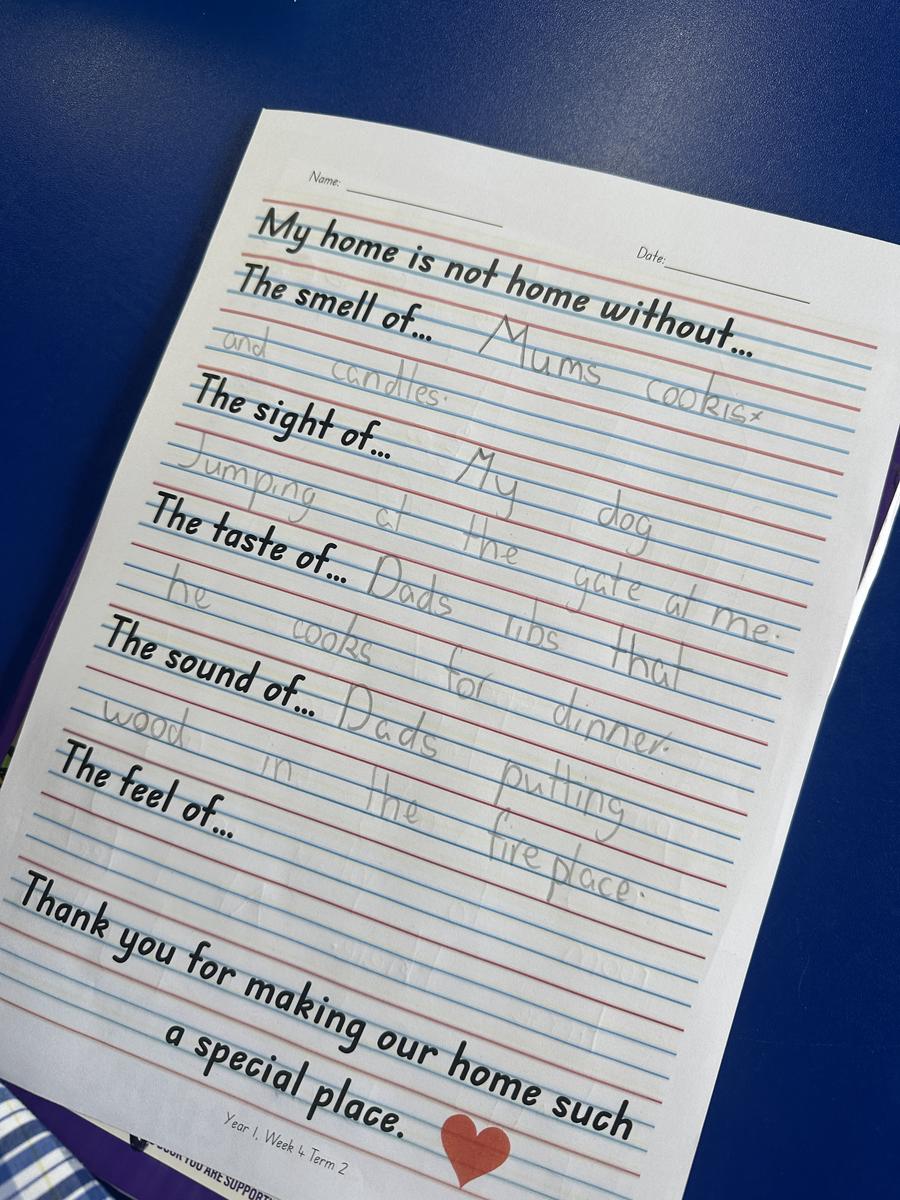 Name:
Date:
My home is not home without...
The smell of... Mums cookisx
and candles.
The sight of... My dog
Jumping at the gate at me.
The taste of... Dads ribs that
he cooks for dinner.
The sound of... Dads putting
wood in the fire place.
The feel of...
Thank you for making our home such
a special place.
Year 1, Week 4 Term 2
YOU ARE SUPPORT